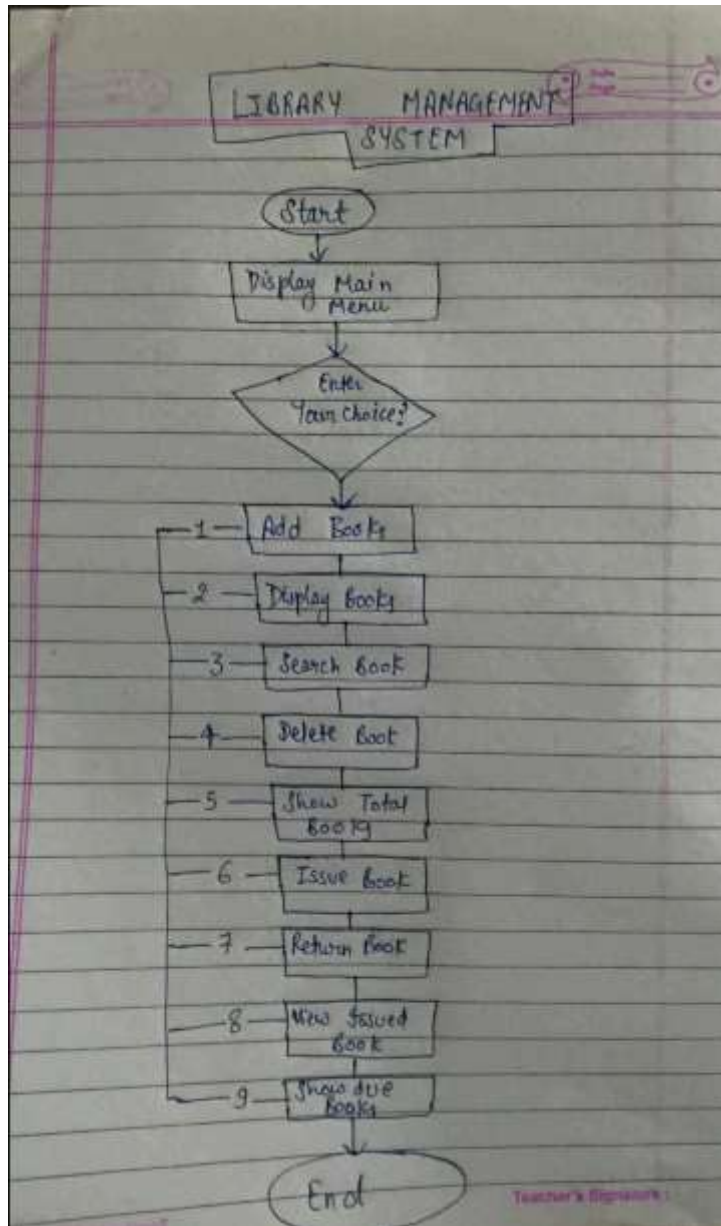 LIBRARY MANAGEMENT
SYSTEM
Start
Display Main
Menu
Enter
Your choice?
1 Add Books
2 Display Books
3 Search Book
4 Delete Book
5 Show Total
Books
6 Issue Book
7 Return Book
8 View Issued
Book
9 Show due
Books
End
Teacher's Signature :